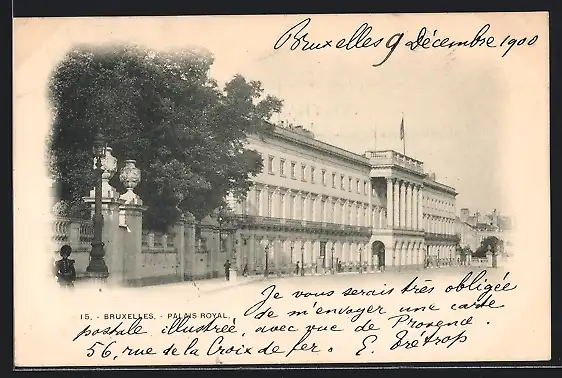 Bruxelles 9 Décembre 1900
15. - BRUXELLES. - PALAIS ROYAL.
Je vous serais très obligée
de m'envoyer une carte
postale illustrée, avec vue de Provence.
56, rue de la Croix de fer. E. Trétrop